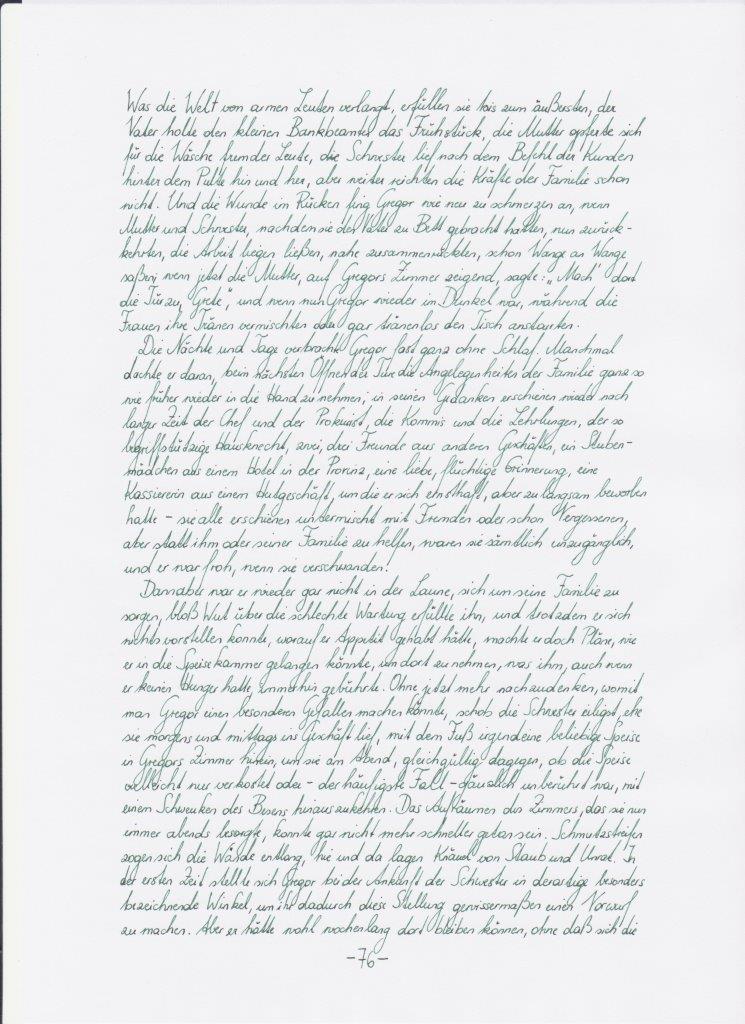 Was die Welt von armen Leuten verlangt, erfüllen sie bis zum äußersten, der
Vater holte den kleinen Bankbeamten das Frühstück, die Mutter opferte sich
für die Wäsche fremder Leute, die Schwester lief nach dem Befehl der Kunden
hinter dem Pulte hin und her, aber weiter reichten die Kräfte der Familie schon
nicht. Und die Wunde im Rücken fing Gregor wie neu zu schmerzen an, wenn
Mutter und Schwester, nachdem sie den Vater zu Bett gebracht hatten, nun zurück-
kehrten, die Arbeit liegen ließen, nahe zusammenrückten, schon Wange an Wange
saßen; wenn jetzt die Mutter, auf Gregors Zimmer zeigend, sagte: „Mach' dort
die Tür zu, Grete“, und wenn nun Gregor wieder im Dunkel war, während die
Frauen ihre Tränen vermischten oder gar tränenlos den Tisch anstarrten.
Die Nächte und Tage verbrachte Gregor fast ganz ohne Schlaf. Manchmal
dachte er daran, beim nächsten Öffnen der Türe die Angelegenheiten der Familie ganz so
wie früher wieder in die Hand zu nehmen; in seinen Gedanken erschienen wieder nach
langer Zeit der Chef und der Prokurist, die Kommis und die Lehrlungen, der so
begriffsstützige Hausknecht, zwei, drei Freunde aus anderen Geschäften, ein Stuben-
mädchen aus einem Hotel in der Provinz, eine liebe, flüchtige Erinnerung, eine
Kassiererin aus einem Hutgeschäft, um die er sich ernsthaft, aber zu langsam beworben
hatte – sie alle erschienen untermischt mit Fremden oder schon Vergessenen,
aber statt ihm oder seiner Familie zu helfen, waren sie sämtlich unzugänglich,
und er war froh, wenn sie verschwanden.
Dann aber war er wieder gar nicht in der Laune, sich um seine Familie zu
sorgen, bloß Wut über die schlechte Wartung erfüllte ihn, und trotzdem er sich
nichts vorstellen konnte, worauf er Appetit gehabt hätte, machte er doch Pläne, wie
er in die Speisekammer gelangen könnte, um dort zu nehmen, was ihm, auch wenn
er keinen Hunger hatte, immerhin gebührte. Ohne jetzt mehr nachzudenken, womit
man Gregor einen besonderen Gefallen machen könnte, schob die Schwester eiligst, ehe
sie morgens und mittags ins Geschäft lief, mit dem Fuß irgendeine beliebige Speise
in Gregors Zimmer hinein, um sie am Abend, gleichgültig dagegen, ob die Speise
vielleicht nur verkostet oder – der häufigste Fall – gänzlich unberührt war, mit
einem Schwenken des Besens hinauszukehren. Das Aufräumen des Zimmers, das sie nun
immer abends besorgte, konnte gar nicht mehr schneller getan sein. Schmutzstreifen
zogen sich die Wände entlang, hie und da lagen Knäuel von Staub und Unrat. In
der ersten Zeit stellte sich Gregor bei der Ankunft der Schwester in derartige besonders
bezeichnende Winkel, um ihr dadurch diese Stellung gewissermaßen einen Vorwurf
zu machen. Aber er hätte wohl wochenlang dort bleiben können, ohne daß sich die
-76-